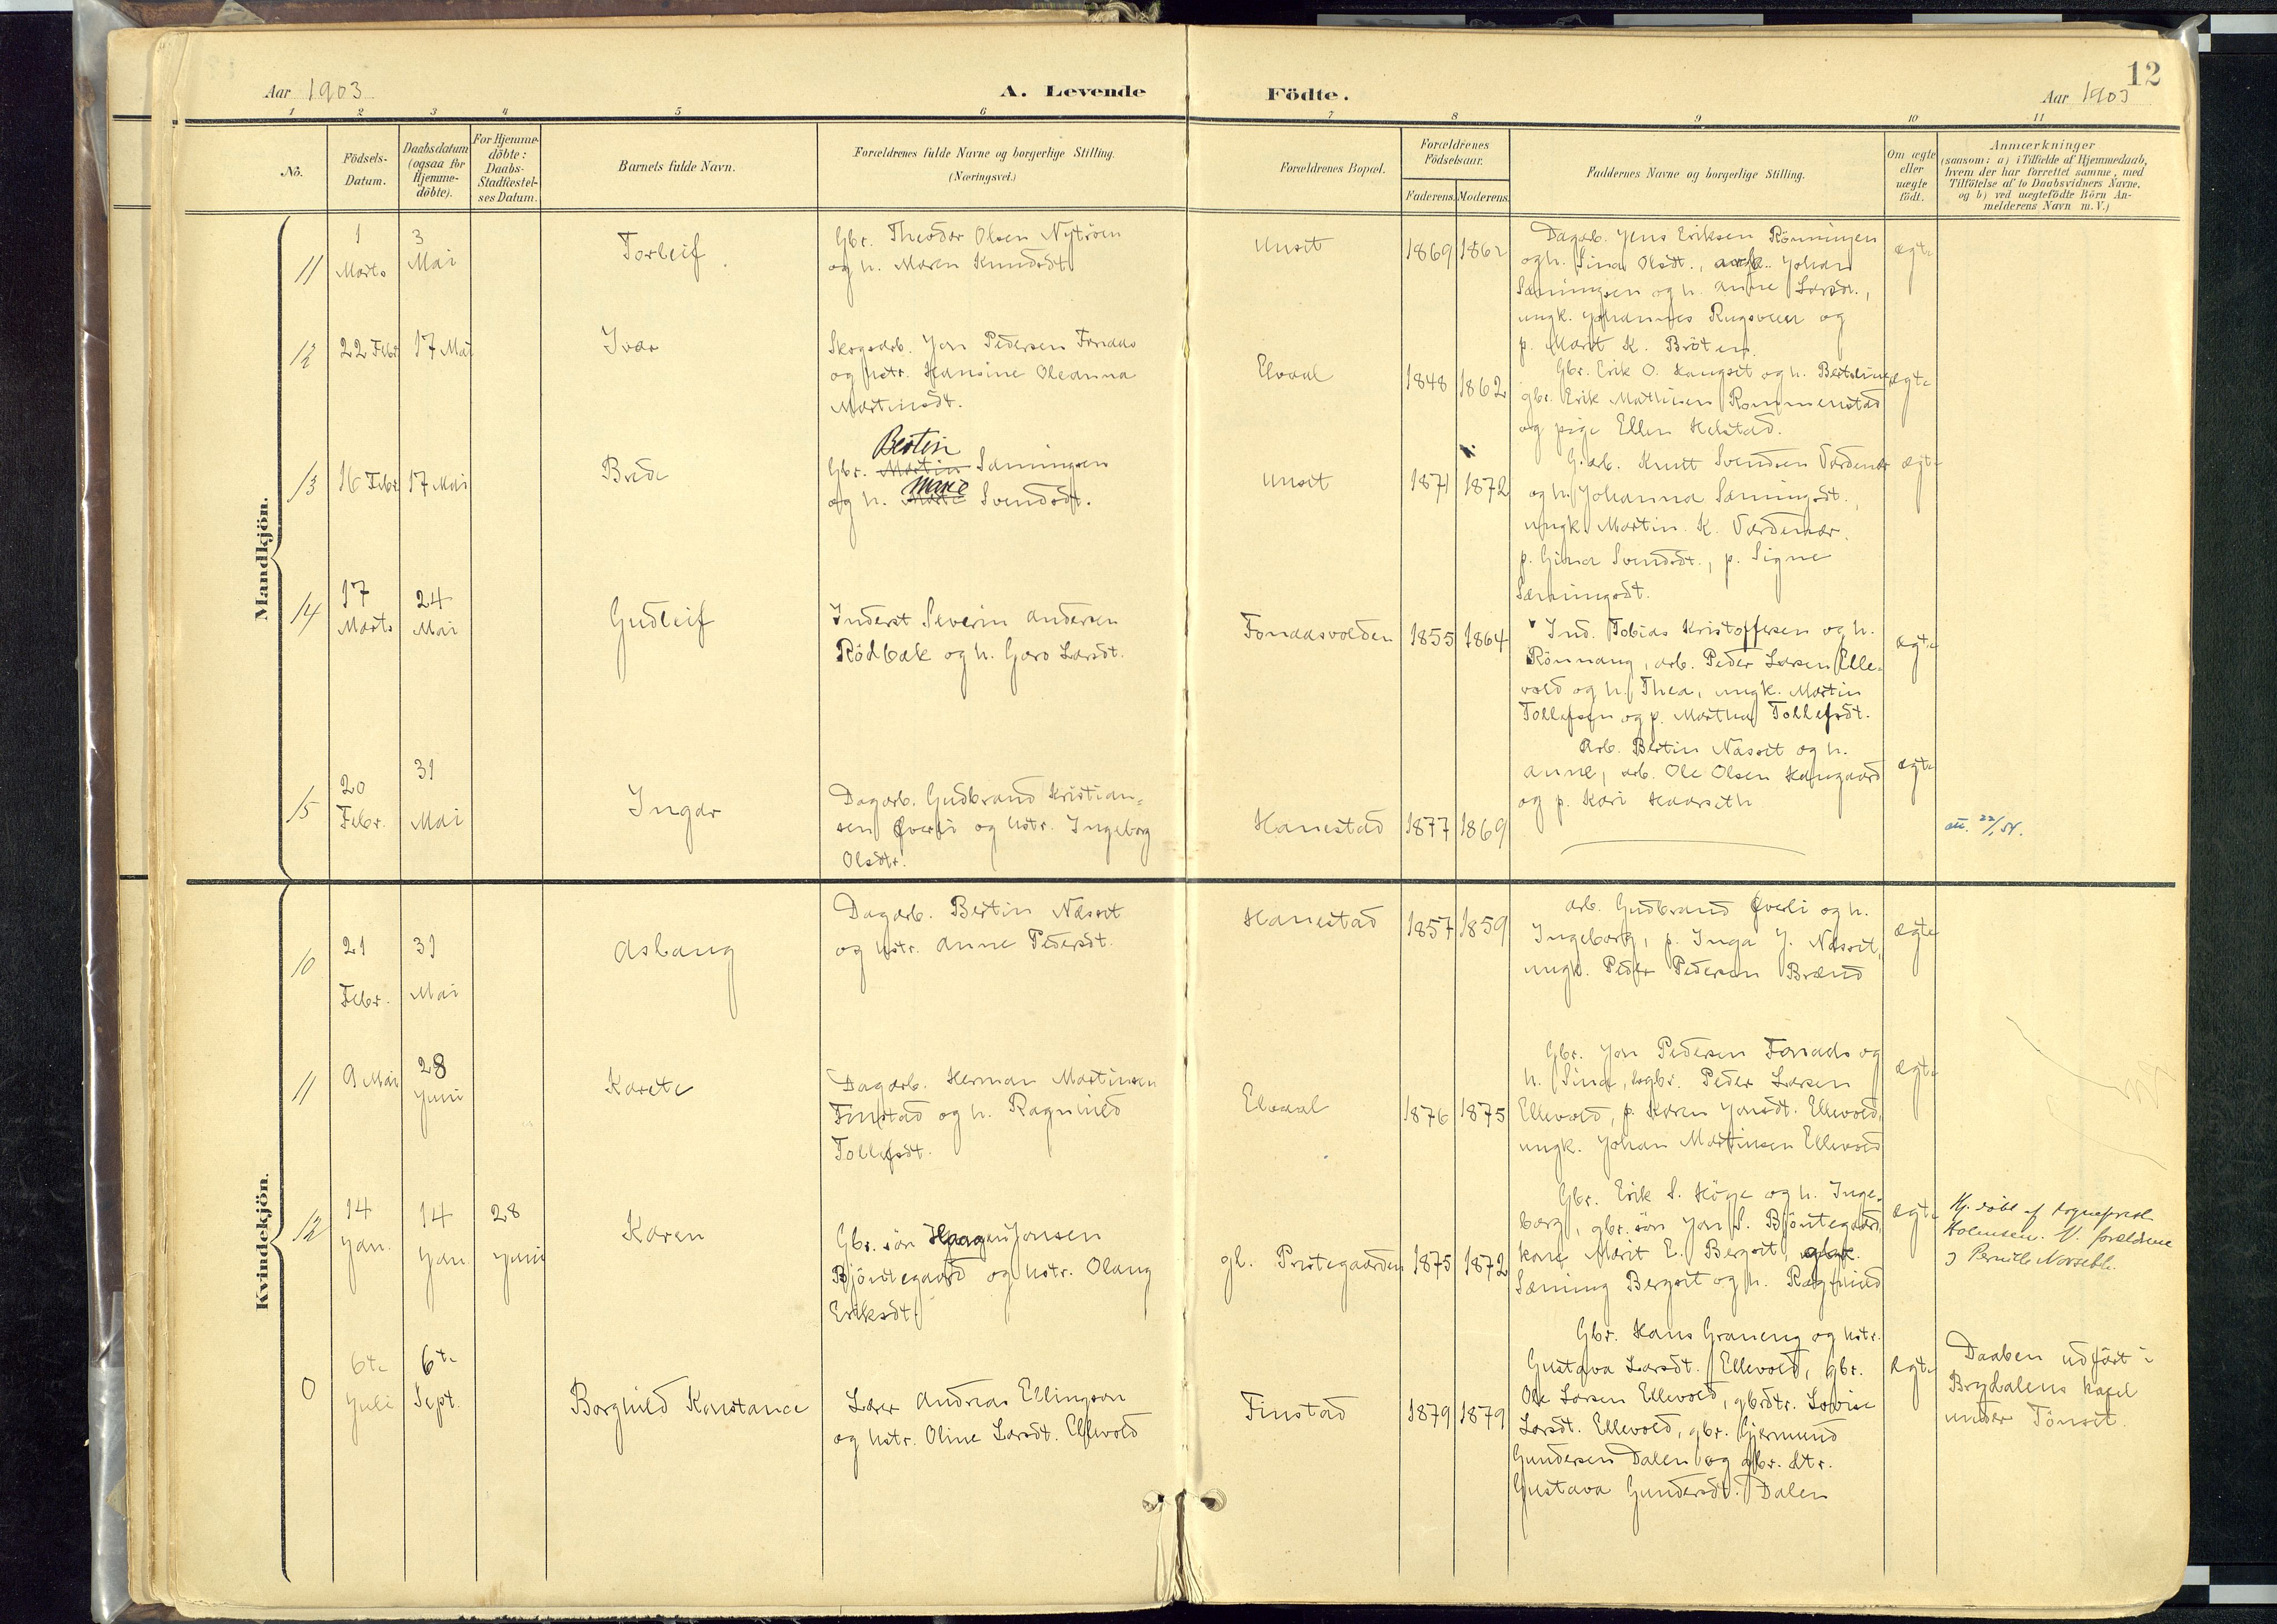 12
Aar 1903
A. Levende
Födte.
Aar 1903
1 2 3 4 5 6 7 8 9 10 11
No.
Födsels-
Datum.
Daabsdatum
(ogsaa for
Hjemme-
döbte).
For Hjemme-
döbte:
Daabs-
Stadfæstel-
ses Datum.
Barnets fulde Navn.
Forældrenes fulde Navne og borgerlige Stilling.
(Næringsvei.)
Forældrenes Bopæl.
Forældrenes
Födselsaar.
Faderens. Moderens.
Faddernes Navne og borgerlige Stilling.
Om ægte
eller
uægte
födt.
Anmærkninger
(saasom: a) i Tilfælde af Hjemmedaab,
hvem der har forrettet samme, med
Tilföielse af to Daabsvidners Navne,
og b) ved uægtefödte Börn An-
melderens Navn m. V.)
Mandkjön.
11
1
Marts
3
Mai
Torleif
Gbr. Theodor Olsen Nytröen
og h. Maren Knudsdt.
Unset
1869
Dagarb. Jens Eriksen Rönningen
og h. Sina Olsdt., arb. Johan
Sæmingsen og h. Anne Larsdt.,
ungk. Johannes Rugsveen og
p. Marit K. Bröten.
ægte
12
22 Febr
17 Mai
Ivar
Skogsarb. Jon Pedersen Fonaas
og hstr. Hansine Oleanna
Martinsdt.
Elvaal
1848 1862
Gbr. Erik O. Haugset og h. Bertline,
gbr. Erik Mathisen Rommenstad
og pige Ellen Helstad.
ægte
13
16 Febr
17 Mai
Brede
Bertin
Gbr. Martin Sæmingsen
Marie
og h. Svendsdt.
Unset
1871 1872
G.arb. Knut Svendsen Vardenær
og h. Johanna Sæmingsdt.,
ungk. Martin K. Vardenær,
p. Gina Svendsdt., p. Signe
Sæmingsdt.
ægte
14
17
Marts
24
Mai
Gudleif
Inderst Severin Andersen
Rödbæk og h. Goro Larsdt.
Fonaasvolden
1855 1864
Ind. Tobias Kristoffersen og h.
Rönnaug, arb. Peder Larsen Elle-
vold og h. Thea, ungk. Martin
Tollefsen og p. Martha Tollefsdt.
ægte
15
20
Febr.
31
Mai
Ingar
Dagarb. Gudbrand Kristian-
sen Øverli og hstr. Ingeborg
Olsdtr.
Hanestad
1877 1869
Arb. Bertin Næsset og h.
Anne, arb. Ole Olsen Haugaard
og p. Kari Haarseth
ægte
att. 22/1 54.
Kvindekjön.
10
21
Febr.
31
Mai
Aslaug
Dagarb. Bertin Næsset
og hstr. Anne Pedersdt.
Hanestad
1857 1859
Arb. Gudbrand Øverli og h.
Ingeborg, p. Inga J. Næsset,
ungk. Peder Pedersen Brænd
ægte
11
9 Mai
28
Juni
Karete
Dagarb. Herman Martinsen
Finstad og h. Ragnhild
Tollefsdt.
Elvaal
1876 1875
Gbr. Jon Pedersen Fonaas og
h. Sina, gbr. Peder Larsen
Ellevold, p. Karen Jonsdt. Ellevold,
ungk. Johan Martinsen Ellevold
ægte
12
14
Jan.
14
Jan.
28
Juni
Karen
Gbr. sön Haagen Jonsen
Bjöntegaard og hstr. Olaug
Eriksdt.
gl. Prestegaarden
1875 1872
Gbr. Erik S. Höye og h. Inge-
borg, gbr. sön Jon S. Bjöntegaard,
kone Marit E. Bergset, gbr.
Sæming Bergset og h. Ragnhild
ægte
Hj. döbt af sogneprest
Holmsen. V. forældrene
0
6te
Juli
6te
Sept.
Borghild Konstance
Lærer Andreas Ellingson
og hstr. Oline Larsdt. Ellevold
Finstad
1879 1879
Gbr. Hans Graneng og hstr.
Gustava Larsdt. Ellevold, gbr.
Ole Larsen Ellevold, gbrdtr. Lovise
Larsdt. Ellevold, gbr. Gjermund
Gundersen Dalen og gbr. dtr.
Gustava Gundersdt. Dalen
ægte
Daaben udfört i
Brydalens kapel
under Tönset.